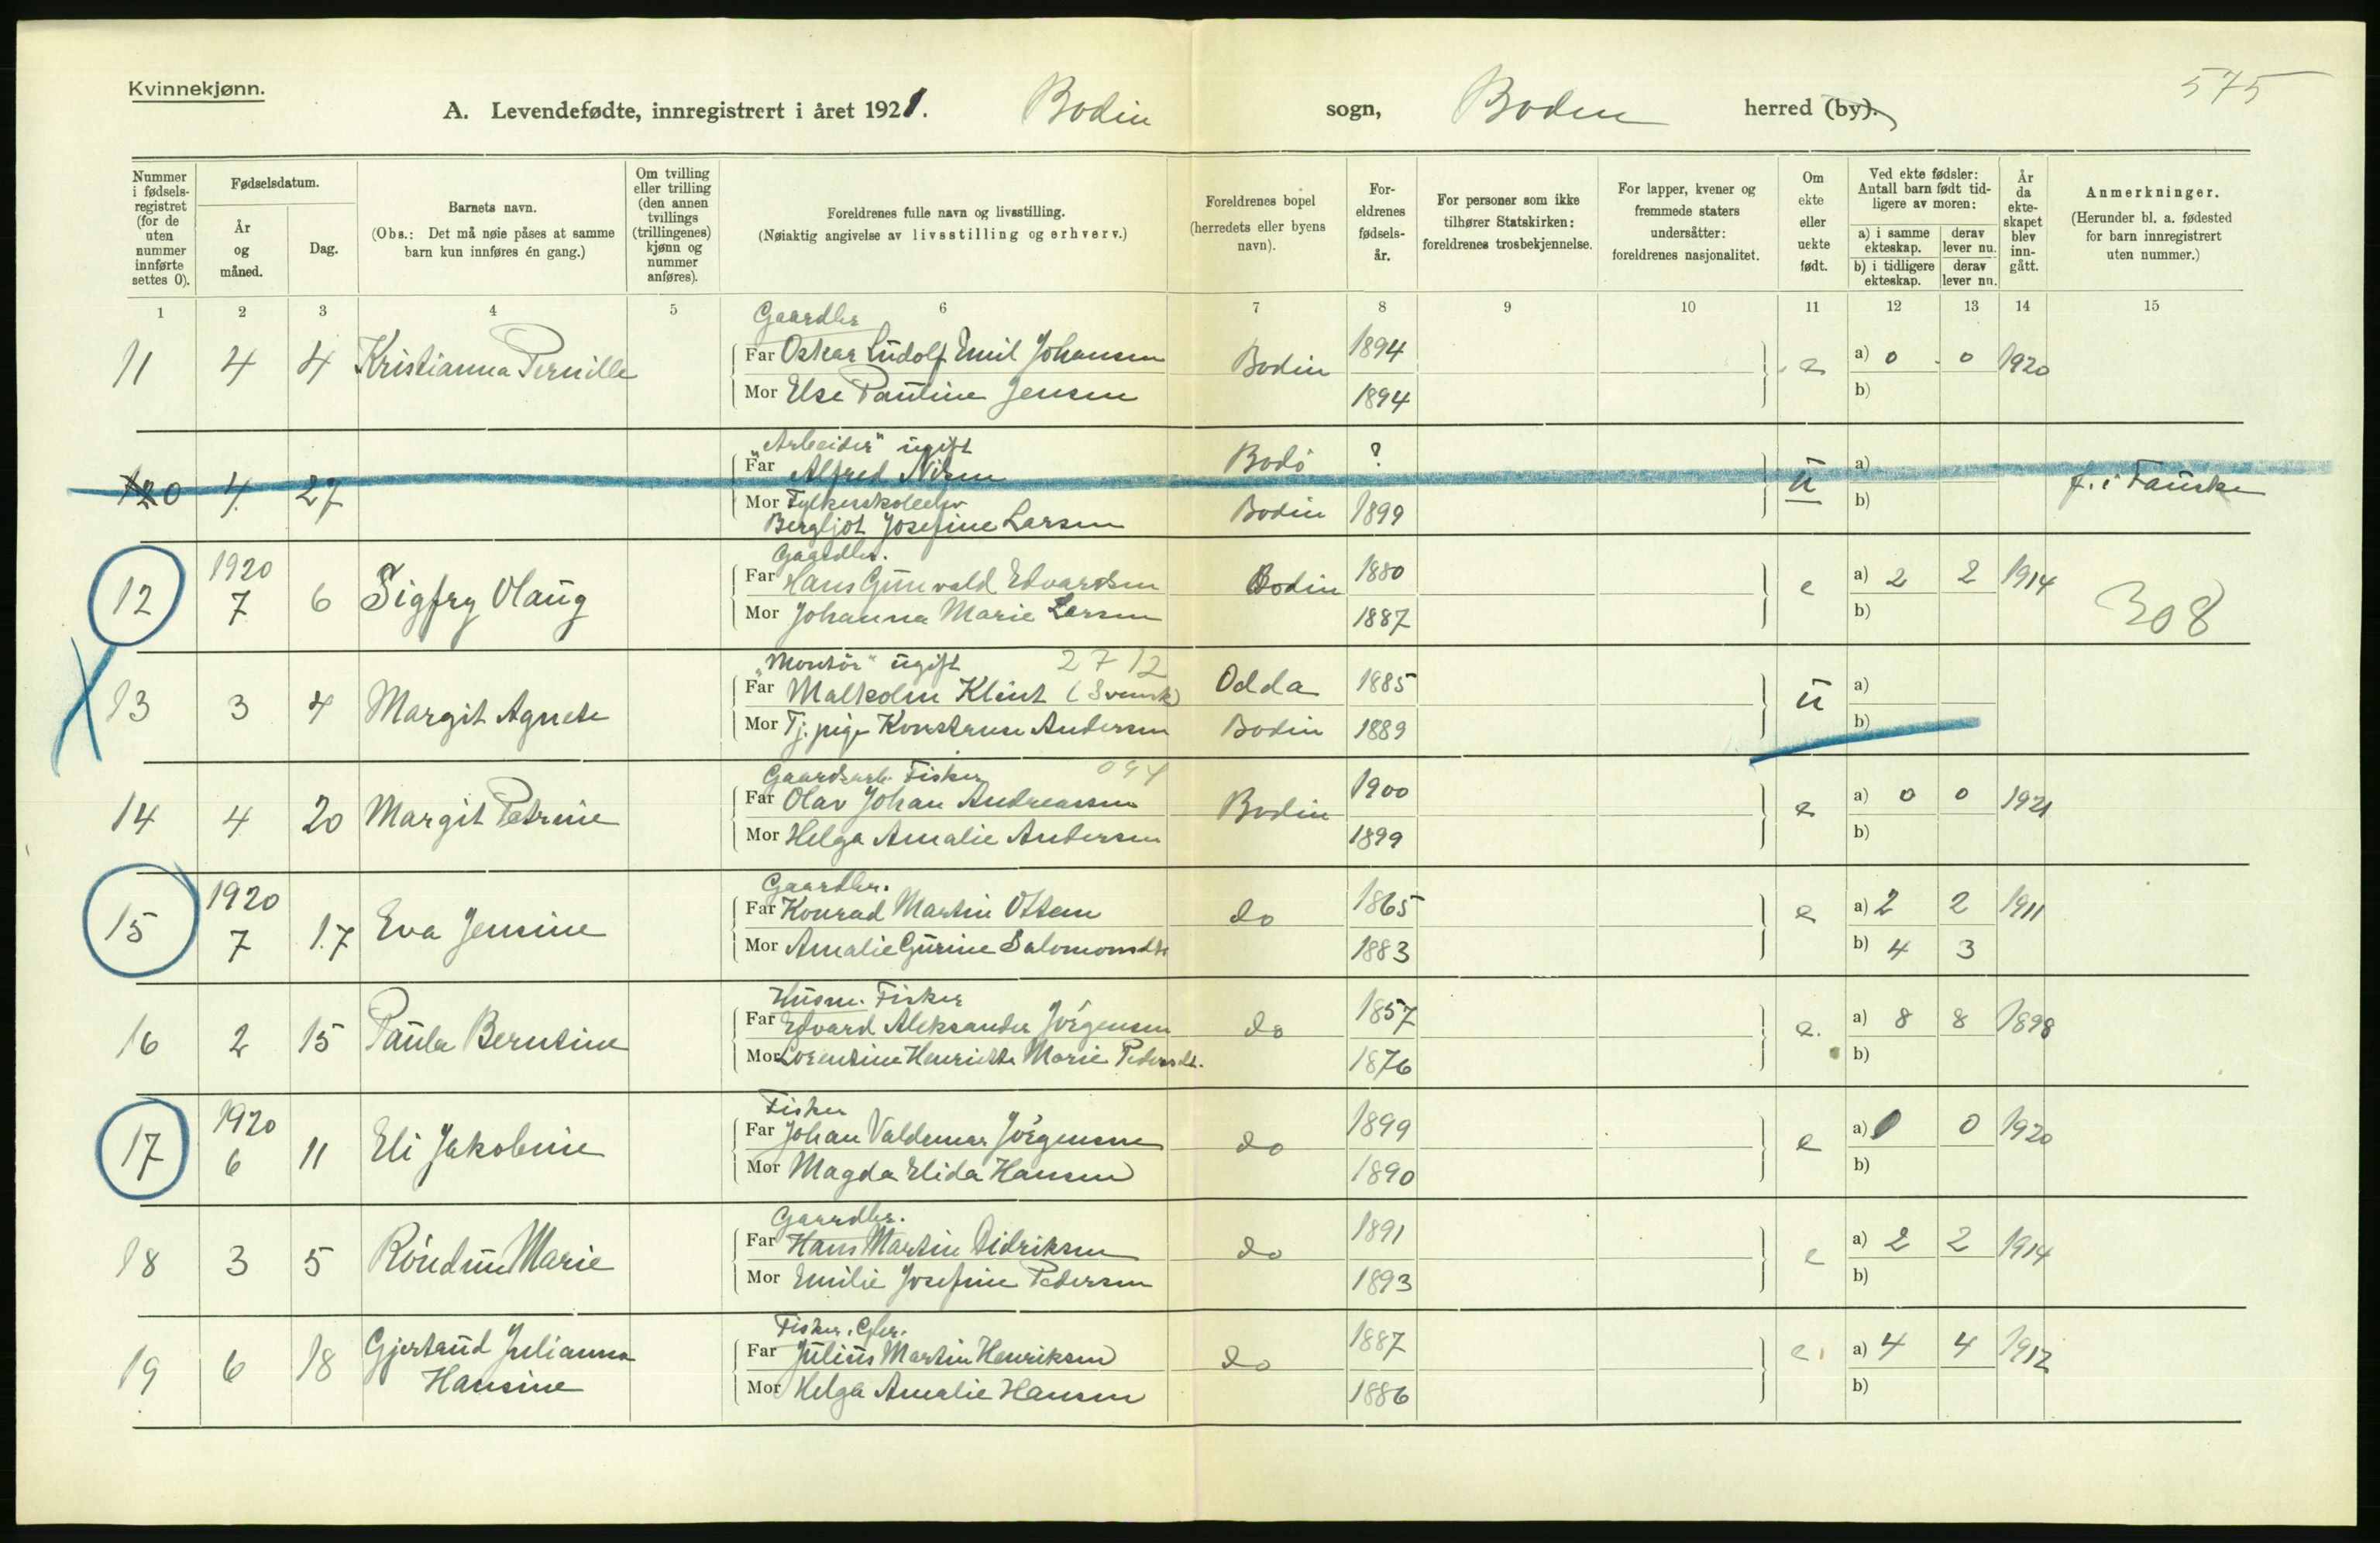 Kvinnekjønn.
575
A. Levendefødte, innregistrert i året 1921. Bodin sogn, Bodin herred (by).
Nummer i fødsels-registret (for de uten nummer innførte settes 0).
Fødselsdatum.
År og måned.
Dag.
Barnets navn.
(Obs.: Det må nøie påses at samme barn kun innføres én gang.)
Om tvilling eller trilling (den annen tvillings (trillingenes) kjønn og nummer anføres).
Foreldrenes fulle navn og livsstilling.
(Nøiaktig angivelse av livsstilling og erhverv.)
Foreldrenes bopel (herredets eller byens navn).
For-eldrenes fødsels-år.
For personer som ikke tilhører Statskirken: foreldrenes trosbekjennelse.
For lapper, kvener og fremmede staters undersåtter: foreldrenes nasjonalitet.
Om ekte eller uekte født.
Ved ekte fødsler: Antall barn født tid-ligere av moren:
a) i samme ekteskap.
derav lever nu.
b) i tidligere ekteskap.
derav lever nu.
År da ekte-skapet blev inn-gått.
Anmerkninger.
(Herunder bl. a. fødested for barn innregistrert uten nummer.)
1 2 3 4 5 6 7 8 9 10 11 12 13 14 15
Gaardbr
11 4 4 Kristianna Pernille Far Oskar Ludolf Emil Johansen Bodin 1894 e a) 0 0 1920
Mor Else Pauline Jensen 1894 b)
"Arbeider" ugift
0 4. 27 Far Alfred Nilsen Bodö ? u a) f. i Fauske
Mor Fylkesskoleelev
Bergljot Josefine Larsen Bodin 1899 b)
Gaardbr.
12 1920 7 6 Sigfry Olaug Far Hans Gunvald Edvardsen Bodin 1880 e a) 2 2 1914 308
Mor Johanna Marie Larsen 1887 b)
"Montör" ugift 27 12
13 3 4 Margit Agnete Far Malkolm Klint (Svensk) Odda 1885 u a)
Mor Tj. pige Konstanse Andersen Bodin 1889 b)
Gaardsarb. Fisker 094
14 4 20 Margit Petrine Far Olav Johan Andreassen Bodin 1900 e a) 0 0 1921
Mor Helga Amalie Andersen 1899 b)
Gaardbr.
15 1920 7 17 Eva Jensine Far Konrad Martin Ottem do 1865 e a) 2 2 1911
Mor Amalie Gurine Salomonsdtr 1883 b) 4 3
Husm. Fisker
16 2 15 Paula Berntine Far Edvard Aleksander Jörgensen do 1857 e. a) 8 8 1898
Mor Lorentine Henriette Marie Pedersdt. 1876 b)
Fisker
17 1920 6 11 Eli Jakobine Far Johan Valdemar Jörgensen do 1899 e a) 0 0 1920
Mor Magda Elida Hansen 1890 b)
Gaardbr.
18 3 5 Röidun Marie Far Hans Martin Didriksen do 1891 e a) 2 2 1914
Mor Emilie Josefine Pedersen 1893 b)
Fisker, Gbr.
19 6 18 Gjertrud Julianna Far Julius Martin Henriksen do 1887 e a) 4 4 1912
Hansine Mor Helga Amalie Hansen 1886 b)